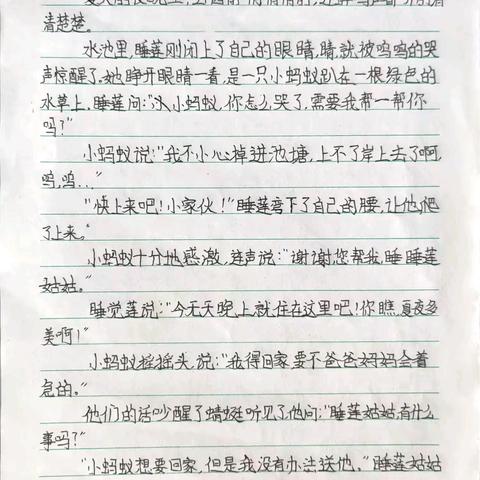 清楚楚。
水池里,睡莲刚闭上了自己的眼睛,晴,就被呜呜的哭
声惊醒了。她睁开眼睛一看,是一只小蚂蚁趴在一根绿色的
水草上。睡莲问:"小蚂蚁,你怎么哭了,需要我帮一帮你
吗?"
小蚂蚁说:"我不小心掉进池塘,上不了岸上去了啊,
呜,呜..."
"快上来吧!小家伙!"睡莲弯下了自己的腰,让他爬
了上来。
小蚂蚁十分地感激,连声说:"谢谢您帮我,睡睡莲
姑姑。"
睡觉莲说:"今无天晚,上就住在这里吧!你瞧,夏夜多
美啊!"
小蚂蚁摇摇头,说:"我得回家,要不爸爸妈妈会着
急的。"
他们的话吵醒了蜻蜓听见了他问:"睡莲姑姑,有什么
事吗?"
"小蚂蚁想要回家,但是我没有办法送他。"睡莲姑姑